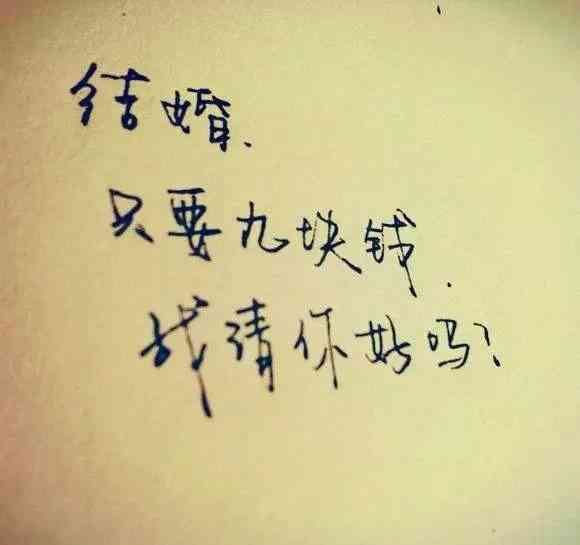 结婚.
只要九块钱.
我请你好吗?